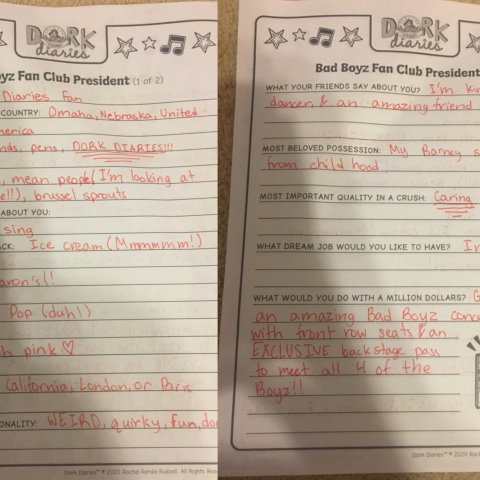 DORK
diaries
yz Fan Club President (1 of 2)
Diaries Fan
COUNTRY: Omaha, Nebraska, United
merica
nds, pens, DORK DIARIES!!!
, mean people (I'm looking at
e!!), brussel sprouts
ABOUT YOU:
sing
CK: Ice cream (Mmmmmm!)
aron's!!
Pop (duh!)
h pink ♡
California, London, or Paris
ONALITY: WEIRD, quirky, fun, do
Dork Diaries™ © 2020 Rachel Renée Russell. All Rights Res
DORK
diaries
Bad Boyz Fan Club President
WHAT YOUR FRIENDS SAY ABOUT YOU? I'm kin
dancer, & an amazing friend
MOST BELOVED POSSESSION: My Barney s
from child hood
MOST IMPORTANT QUALITY IN A CRUSH: Caring
WHAT DREAM JOB WOULD YOU LIKE TO HAVE?
WHAT WOULD YOU DO WITH A MILLION DOLLARS? G
an amazing Bad Boyz conce
with front row seats & an
EXCLUSIVE backstage pass
to meet all 4 of the
Boyz!!
Dork Diaries™ © 2020 Rachel Renée Russell